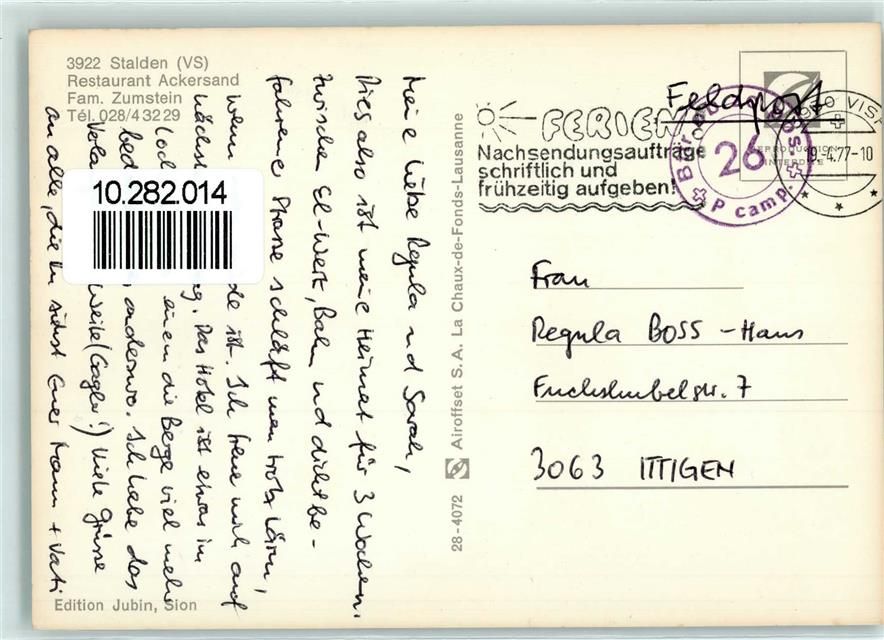 3922 Stalden (VS)
Restaurant Ackersand
Fam. Zumstein
Tél. 028/4 32 29
Meine liebe Regula und Sarah,
Dies also ist meine Heimat für 3 Wochen.
Zwischen El-Werk, Bahn und dicht be-
fahrene Strasse schläft man trotz Lärm,
wenn de ist. Ich freue mich auf
nächst g. Das Hotel ist etwas im
Loch einen die Berge viel mehr
bed , anderswo. Ich habe das
Vola Weile (Gaggler!) Viele Grüsse
an alle, die Du siehst Euer Mann + Vati
Edition Jubin, Sion
28-4072 Airoffset S.A. La Chaux-de-Fonds-Lausanne
10.282.014
FERIEN
Nachsendungsaufträge
schriftlich und
frühzeitig aufgeben!
Feldpost
26
P camp.
VISP
19.-4.77-10
REPRODUCTION
INTERDITE
Frau
Regula BOSS - Haus
Fuchshubelstr. 7
3063 ITTIGEN